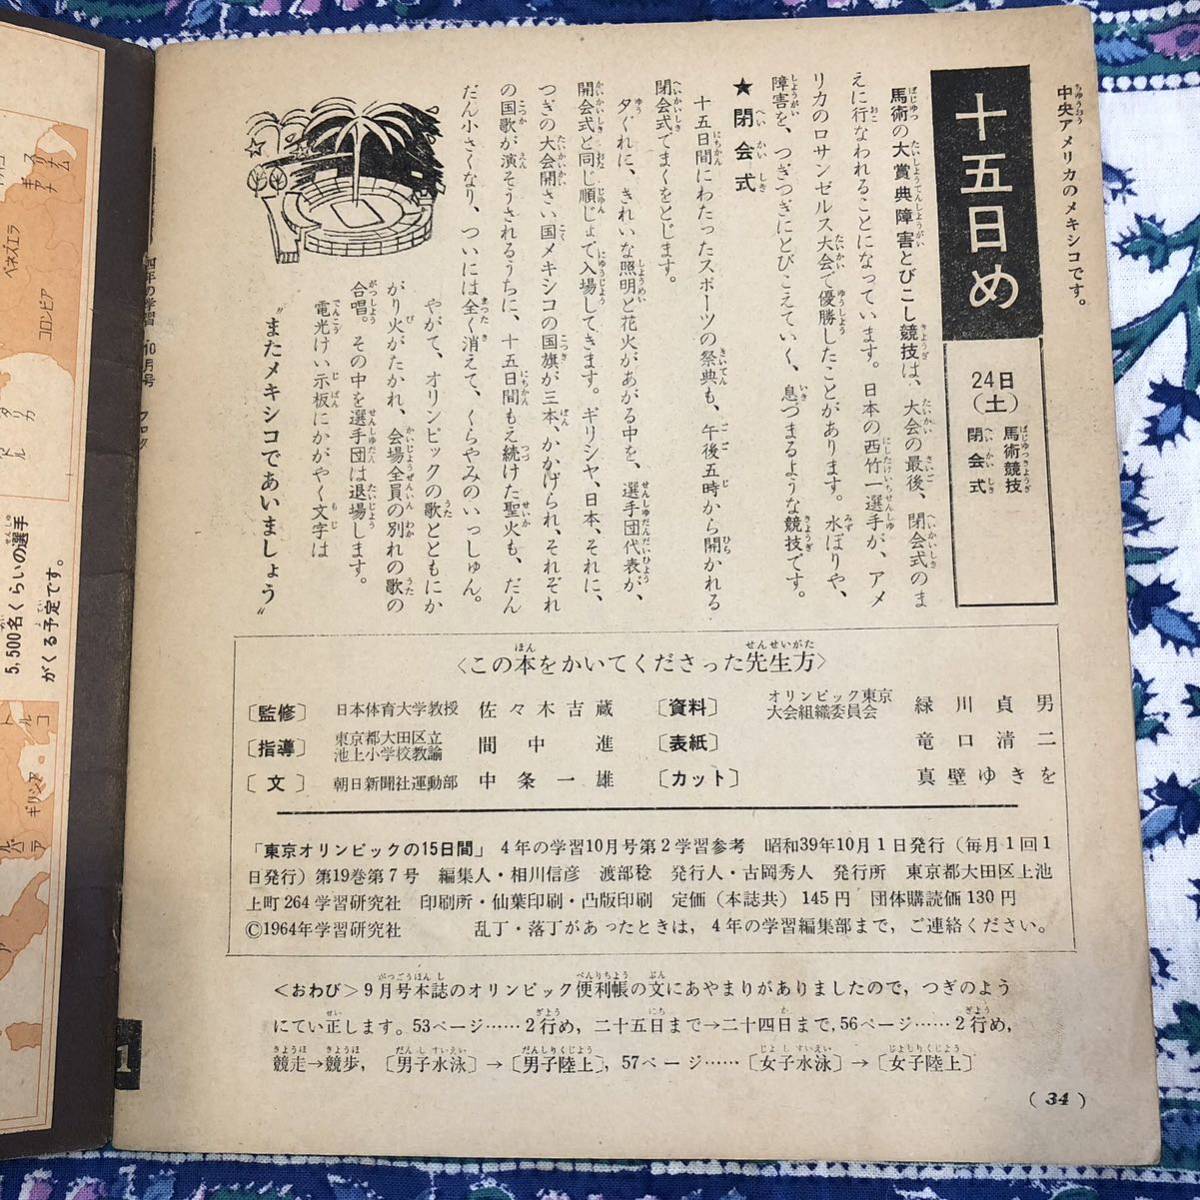 中央アメリカのメキシコです。
十五日め
24日(土)
馬術競技
閉会式
馬術の大賞典障害とびこし競技は、大会の最後、閉会式のま
えに行なわれることになっています。日本の西竹一選手が、アメ
リカのロサンゼルス大会で優勝したことがあります。水ぼりや、
障害を、つぎつぎにとびこえていく、息づまるような競技です。
★閉会式
十五日間にわたったスポーツの祭典も、午後五時から開かれる
閉会式でまくをとじます。
夕ぐれに、きれいな照明と花火があがる中を、選手団代表が、
開会式と同じ順じょで入場してきます。ギリシヤ、日本、それに、
つぎの大会開さい国メキシコの国旗が三本、かかげられ、それぞれ
の国歌が演そうされるうちに、十五日間もえ続けた聖火も、だん
だん小さくなり、ついには全く消えて、くらやみのいっしゅん。
やがて、オリンピックの歌とともにか
がり火がたかれ、会場全員の別れの歌の
合唱。その中を選手団は退場します。
電光けい示板にかがやく文字は
〝またメキシコであいましょう〟
〈この本をかいてくださった先生方〉
〔監修〕 日本体育大学教授 佐々木吉蔵
〔指導〕 東京都大田区立池上小学校教諭 間中進
〔文〕 朝日新聞社運動部 中条一雄
〔資料〕 オリンピック東京大会組織委員会 緑川貞男
〔表紙〕 竜口清二
〔カット〕 真壁ゆきを
「東京オリンピックの15日間」 4年の学習10月号第2学習参考 昭和39年10月1日発行(毎月1回1
日発行)第19巻第7号 編集人・相川信彦 渡部稔 発行人・古岡秀人 発行所 東京都大田区上池
上町264学習研究社 印刷所・仙葉印刷・凸版印刷 定価(本誌共)145円 団体購読価130円
©1964年学習研究社 乱丁・落丁があったときは,4年の学習編集部まで,ご連絡ください。
〈おわび〉9月号本誌のオリンピック便利帳の文にあやまりがありましたので,つぎのよう
にてい正します。53ページ……2行め,二十五日まで→二十四日まで,56ページ……2行め,
競走→競歩,〔男子水泳〕→〔男子陸上〕,57ページ……〔女子水泳〕→〔女子陸上〕
(34)
四年の学習 10月号
ベネズエラ
コロンビア
5,500名くらいの選手
がくる予定です。
ギリシア
1